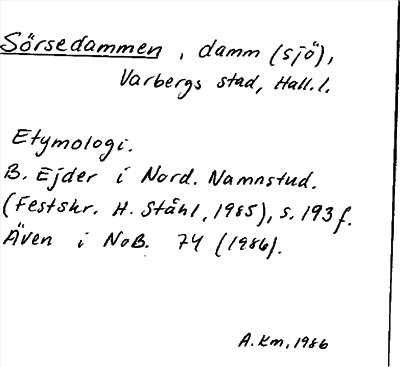 Sörsedammen, damm (sjö),
Varbergs stad, Hall. l.
Etymologi.
B. Ejder i Nord. Namnstud.
(Festskr. H. Ståhl, 1985), s. 193 f.
Även i NoB. 74 (1986).
A. Km, 1986